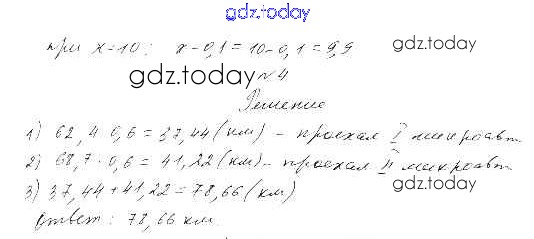 gdz.today
при x=10: x-0,1=10-0,1=9,9 gdz.today
gdz.today №4
Решение
1) 62,4·0,6=37,44(км) - проехал I микроавт.
2) 68,7·0,6=41,22(км)- проехал II микроавт.
3) 37,44+41,22=78,66(км) gdz.today
Ответ: 78,66 км.